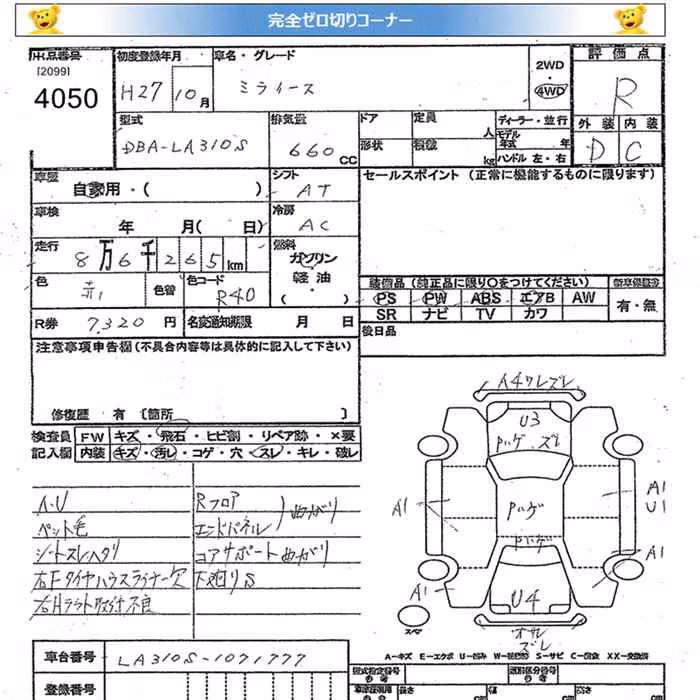 完全ゼロ切りコーナー
出品番号 [2099] 4050
初度登録年月 H27 10月
車名・グレード ミライース
2WD ・ 4WD
評価点 R
型式 DBA-LA310S
排気量 660 CC
ドア 定員 人
形状 積載 kg
ディーラー・並行
モデル年式 年
ハンドル 左・右
外装 内装
D C
車歴 自家用・( )
シフト AT
セールスポイント (正常に機能するものに限ります)
車検 年 月( 日)
冷房 AC
走行 8万6千265km
燃料 ガソリン 軽油 ( )
色 赤 色替 色コード R40
装備品 (純正品に限り○をつけてください)
PS PW ABS エアB AW
SR ナビ TV カワ
有・無
R券 7320円 名変通知期限 月 日
後日品
注意事項申告欄 (不具合内容等は具体的に記入して下さい)
修復歴 有 [箇所 ]
検査員 FW キズ・飛石・ヒビ割・リペア跡・×要
記入欄 内装 キズ・汚レ・コゲ・穴・スレ・キレ・破レ
A4ワレズレ
U3
Pハゲ・ズレ
Pハゲ
Pハゲ
A1
A1
U1
A1
A1
U4
スペア
ズレ
ペット毛
シートスレヘタリ
右Fタイヤハウスライナー欠
Rフロア
エンドパネル
まがり
コアサポートまがり
下廻りS
A-キズ E-エクボ U-凹み W-波 S-サビ C-腐蝕 XX-交換済
車台番号 LA310S-1071777
登録番号
型式指定番号
類別区分番号
長さ cm 幅 cm 高さ cm